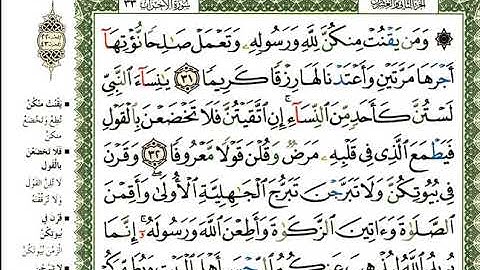 الجزء الثاني والعشرون
سورة الأحزاب
٣٣
۞ وَمَن يَقْنُتْ مِنكُنَّ لِلَّهِ وَرَسُولِهِۦ وَتَعْمَلْ صَٰلِحًا نُّؤْتِهَآ
أَجْرَهَا مَرَّتَيْنِ وَأَعْتَدْنَا لَهَا رِزْقًا كَرِيمًا ٣١ يَٰنِسَآءَ النَّبِيِّ
لَسْتُنَّ كَأَحَدٍ مِّنَ النِّسَآءِ ۚ إِنِ اتَّقَيْتُنَّ فَلَا تَخْضَعْنَ بِالْقَوْلِ
فَيَطْمَعَ الَّذِي فِي قَلْبِهِۦ مَرَضٌ وَقُلْنَ قَوْلًا مَّعْرُوفًا ٣٢ وَقَرْنَ
فِي بُيُوتِكُنَّ وَلَا تَبَرَّجْنَ تَبَرُّجَ الْجَٰهِلِيَّةِ الْأُولَىٰ ۖ وَأَقِمْنَ
الصَّلَوٰةَ وَءَاتِينَ الزَّكَوٰةَ وَأَطِعْنَ اللَّهَ وَرَسُولَهُۥٓ ۚ إِنَّمَا
يُرِيدُ اللَّهُ لِيُذْهِبَ عَنكُمُ الرِّجْسَ أَهْلَ الْبَيْتِ وَيُطَهِّرَكُمْ
يَقْنُتْ مِنكُنَّ
تُطِعْ وتَخْضَعْ
منكنّ
فَلَا تَخْضَعْنَ
بِالْقَوْلِ
لا تُلِنَّ القول
ولا تُرَقِّقْنَهُ
قَرْنَ فِي
بُيُوتِكُنَّ
الْزَمْنَ بيوتكنّ
لَا تَبَرَّجْنَ